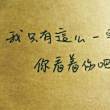 我只有這么一
你看着伤吧